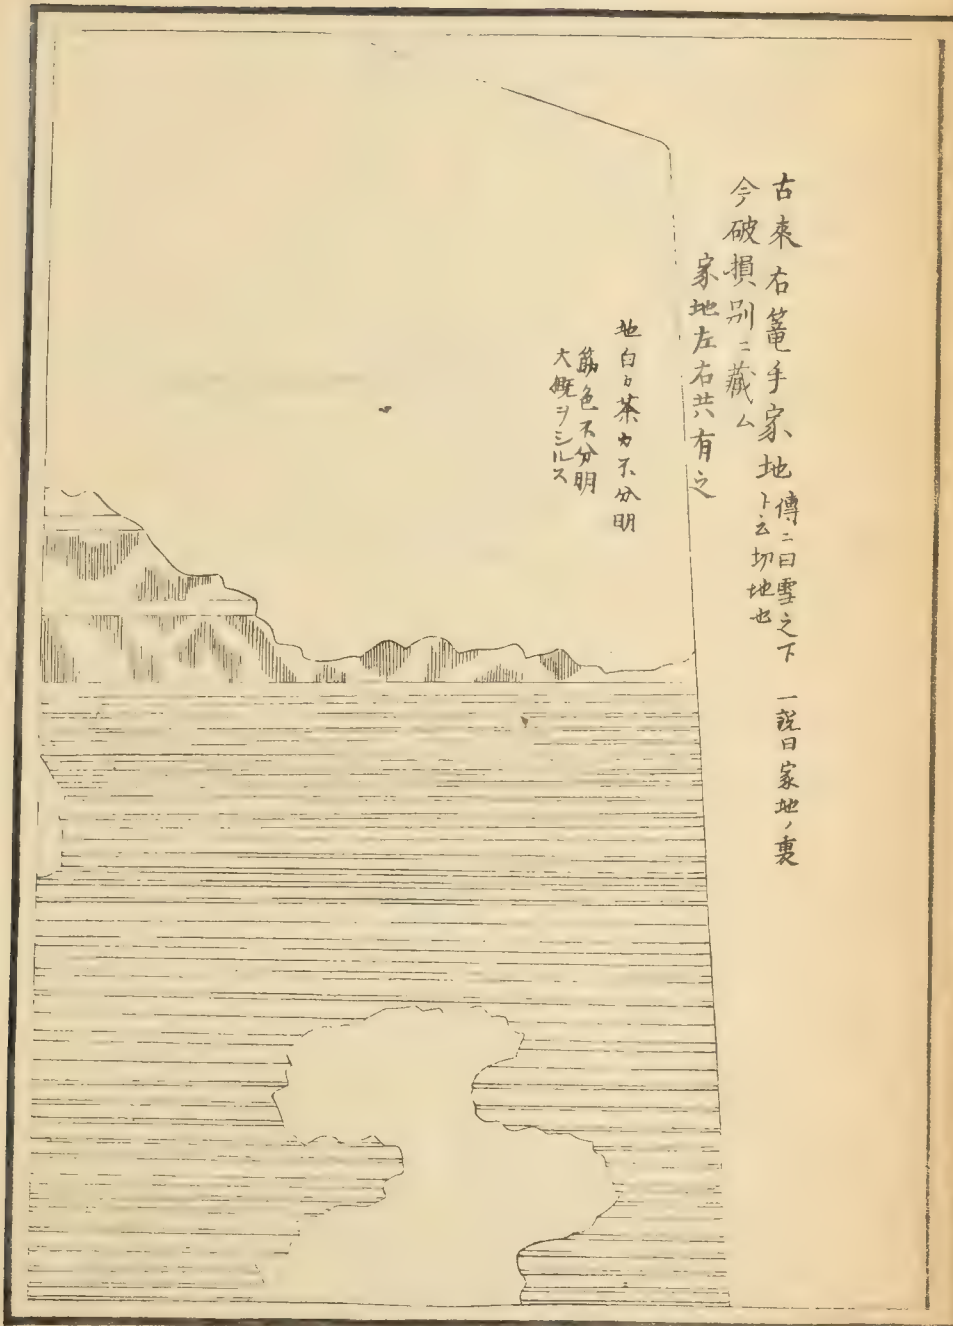 古来右篭手家地 傳ニ曰雪之下 一説曰家地ノ裏
ト云切地也
今破損別ニ蔵ム
家地左右共有之
地白カ茶カ不分明
筋色不分明
大概ヲシルス